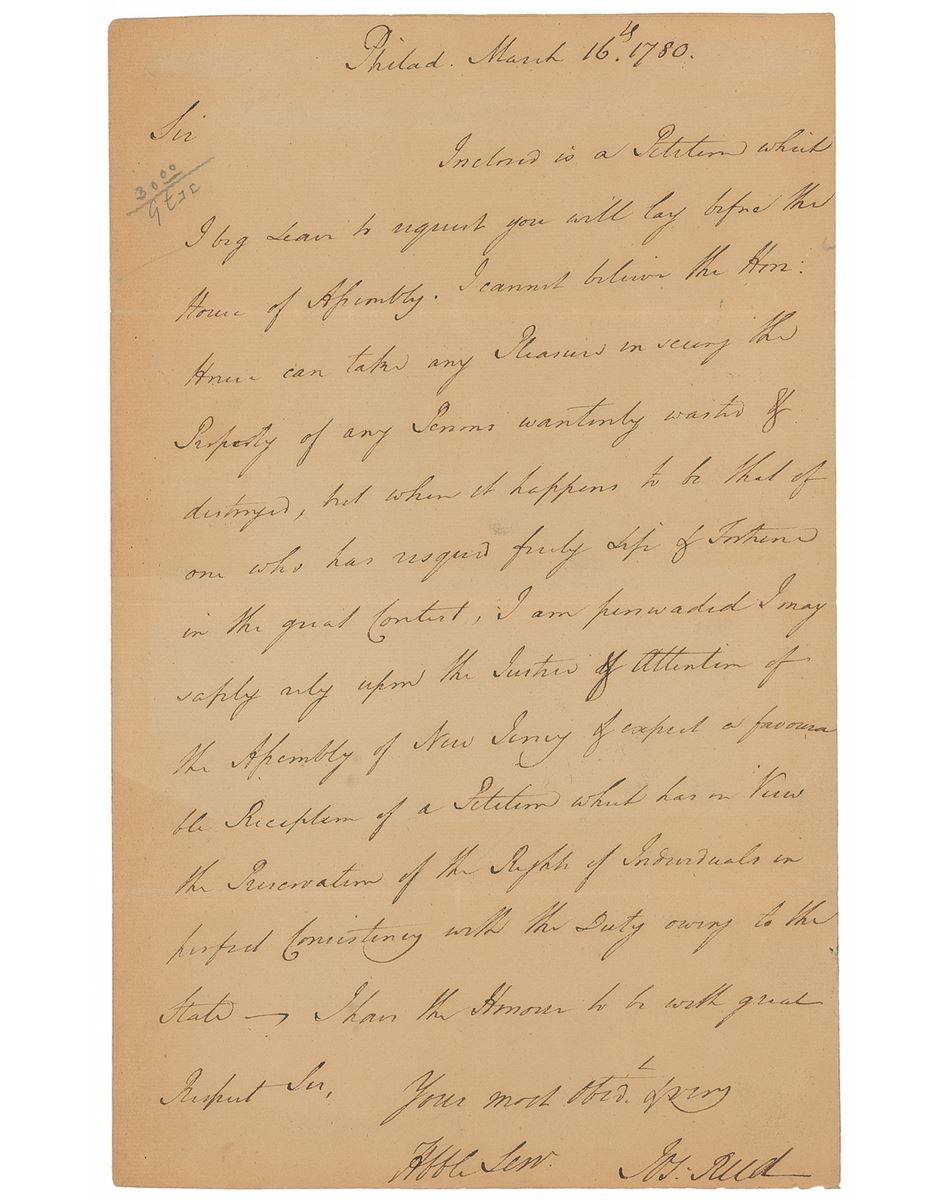 Philad. March 16th. 1780.
Sir
Inclosed is a Petition which
3000
I beg Leave to request you will lay before the
House of Assembly. I cannot believe the Hon:
House can take any Pleasure in seeing the
Property of any Persons wantonly wasted &
destroyed, but when it happens to be that of
one who has risqued freely Life & Fortune
in the great Contest, I am perswaded I may
safely rely upon the Justice & Attention of
the Assembly of New Jersey & expect a favoura
ble Reception of a Petition which has in View
the Preservation of the Rights of Individuals in
perfect Consistency with the Duty owing to the
State — I have the Honour to be with great
Respect Sir,
Your most Obed. & very
Hbble Serv.
Jos: Reed